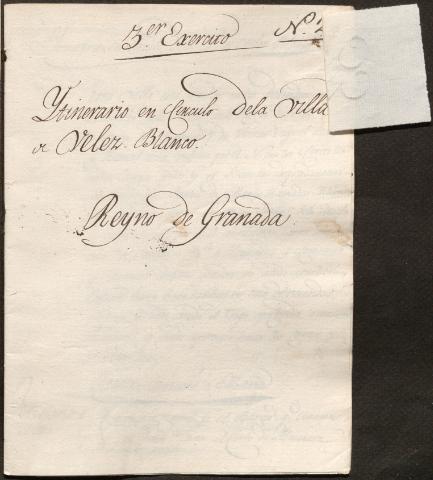 3.er Exercito Nº.
Ytinerario en Circulo dela Villa
de Velez-Blanco.
Reyno de Granada